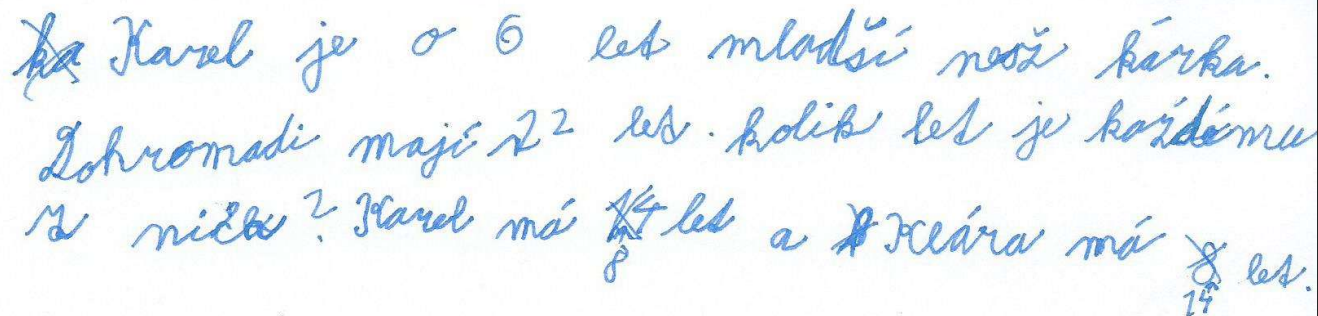 Karel je o 6 let mladší než kárka.
Dohromadi mají 22 let. kolik let je každému
z nich? Karel má 8 let a Klára má 14 let.